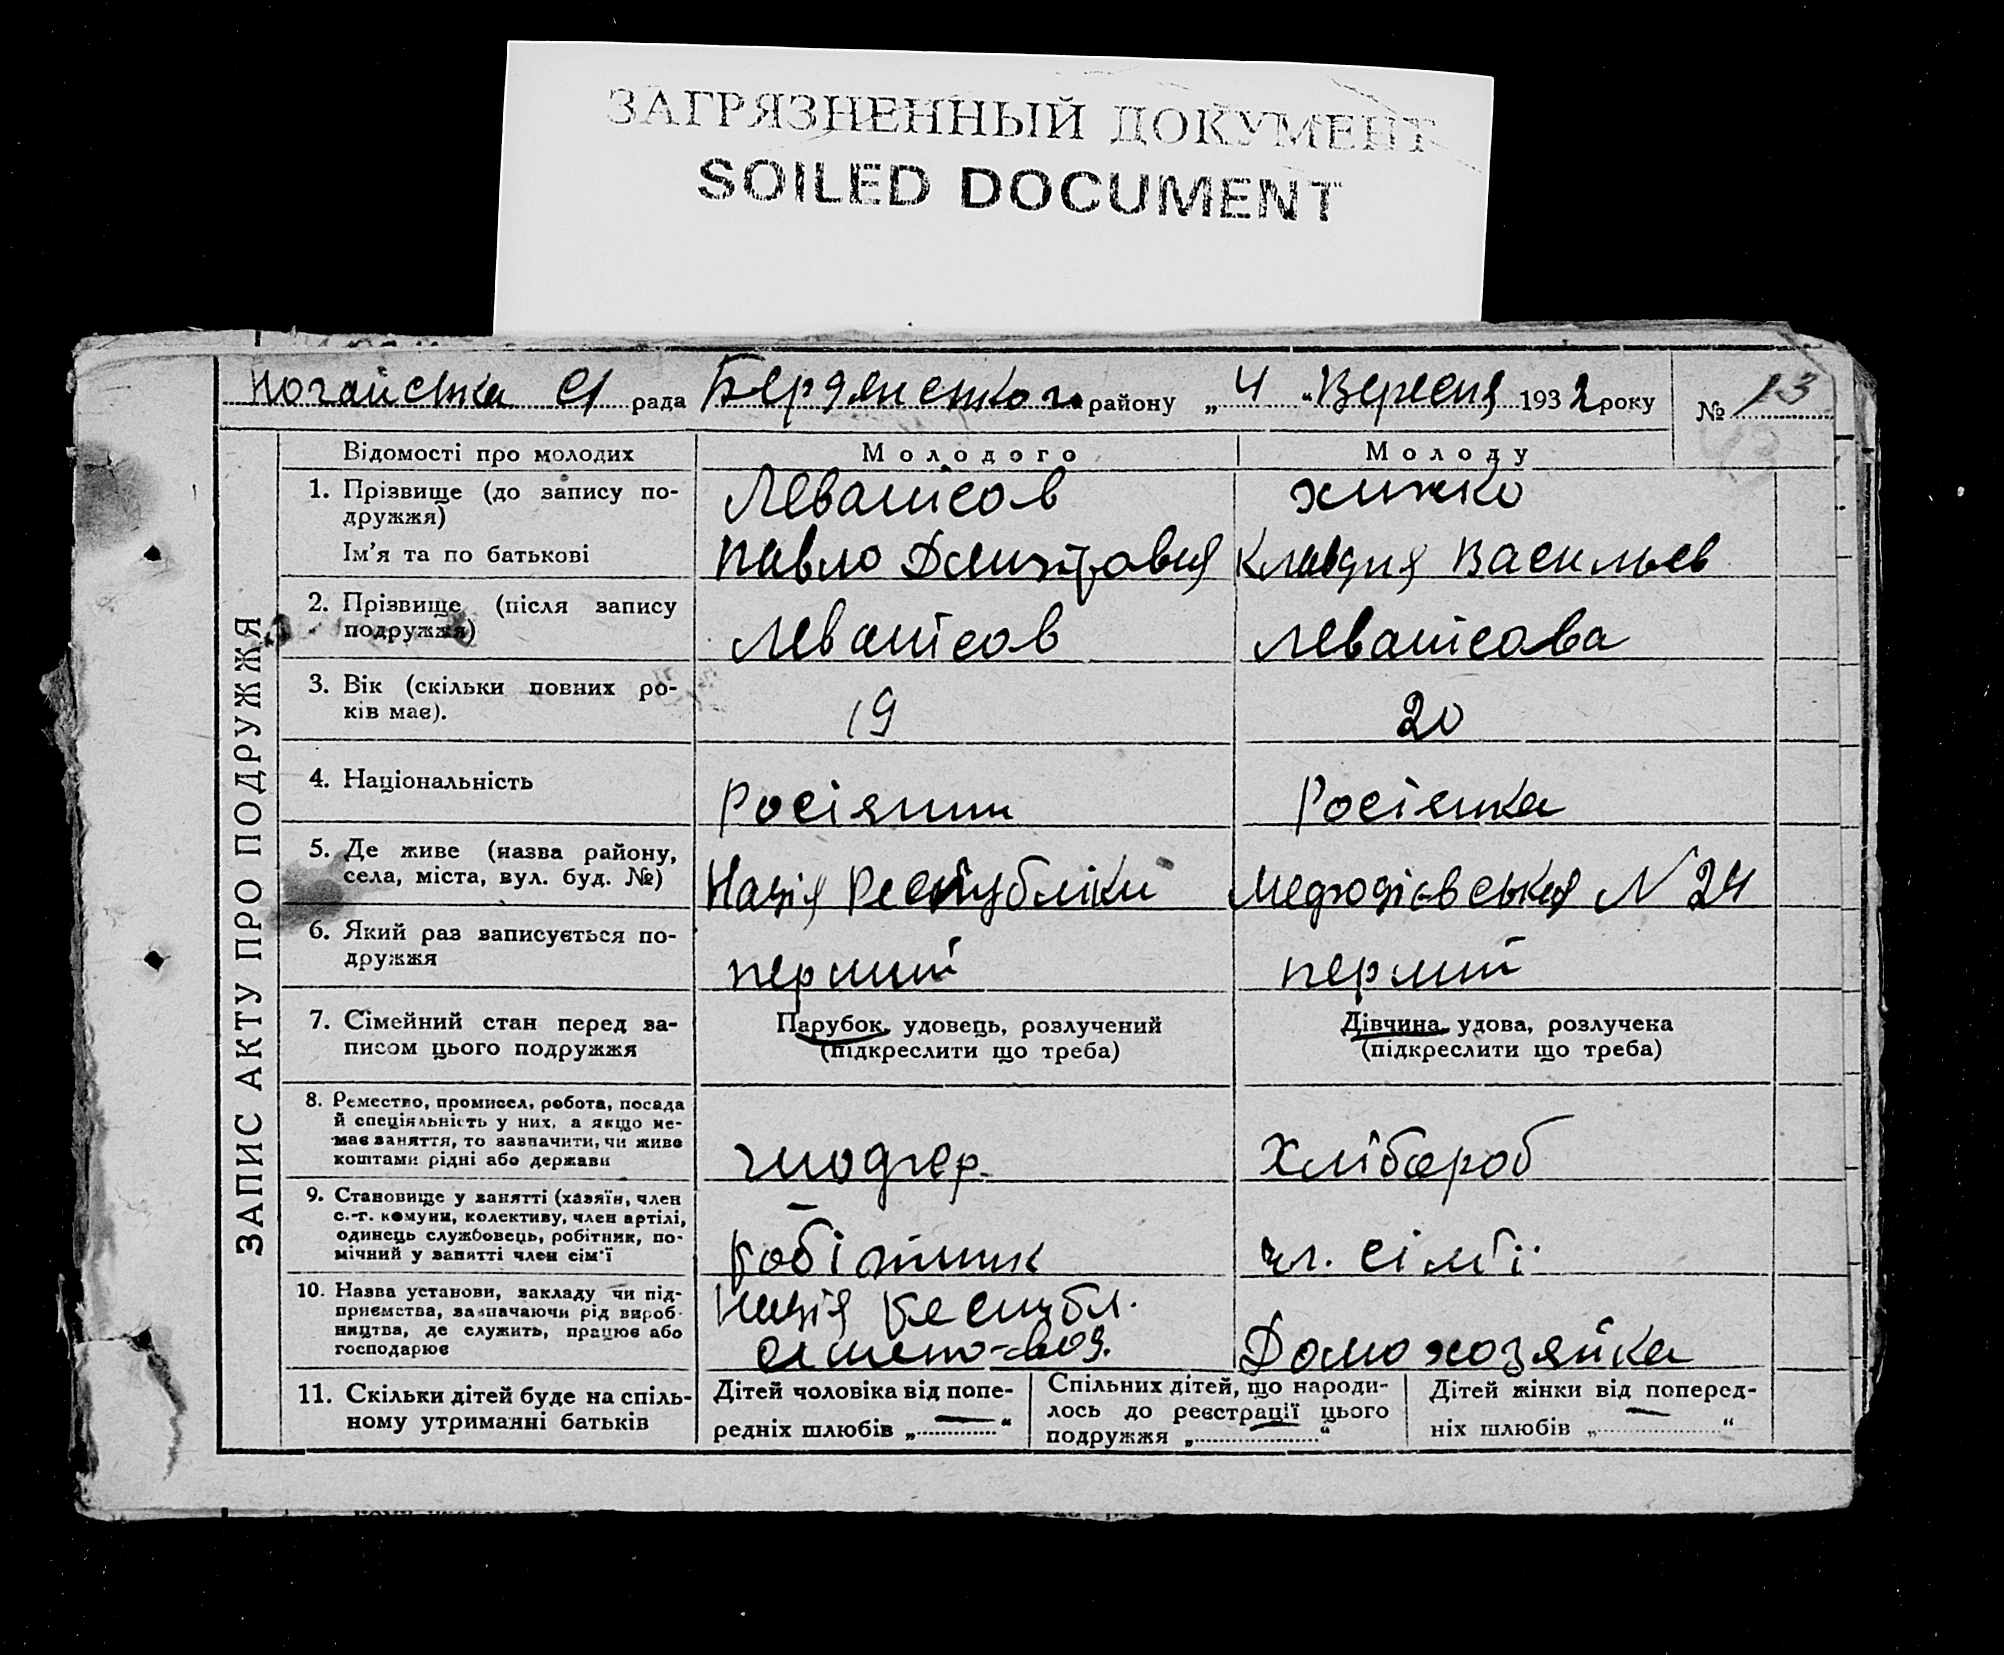 ЗАГРЯЗНЕННЫЙ ДОКУМЕНТ
SOILED DOCUMENT
Ногайська с/ рада Бердянсько г. району „ 4 " Вересня 1932 року № 13
ЗАПИС АКТУ ПРО ПОДРУЖЖЯ
Відомості про молодих Молодого Молоду
1. Прізвище (до запису по-
дружжя)
Левашов Хижко
Ім'я та по батькові Павло Дмитровия Клавдия Васильев
2. Прізвище (після запису
подружжя)
Левашов Левашова
3. Вік (скільки повних ро-
ків має).
19 20
4. Національність Росіянин Росіянка
5. Де живе (назва району,
села, міста, вул. буд. №)
Надія Республіки Мефодієвськая N 24
6. Який раз записується по-
дружжя
перший перший
7. Сімейний стан перед за-
писом цього подружжя
Парубок, удовець, розлучений
(підкреслити що треба)
Дівчина, удова, розлучека
(підкреслити що треба)
8. Ремество, промисел, робота, посада
й спеціяльність у них, а якщо не-
має заняття, то зазначити, чи живе
коштами рідні або держави
Хлібороб
9. Становище у занятті (хазяїн, член
с.-г. комуни, колективу, член артілі,
одинець службовець, робітник, по-
мічний у занятті член сім'ї
робітник чл. сім'ї
10. Назва установи, закладу чи під-
приємства, зазначаючи рід вироб-
ництва, де служить, працює або
господарює
Надія Республ.
Домохозяйка
11. Скільки дітей буде на спіль-
ному утриманні батьків
Дітей чоловіка від попе-
редніх шлюбів „ — "
Спільних дітей, що народи-
лось до реєстрації цього
подружжя „ — "
Дітей жінки від поперед-
ніх шлюбів „ — "